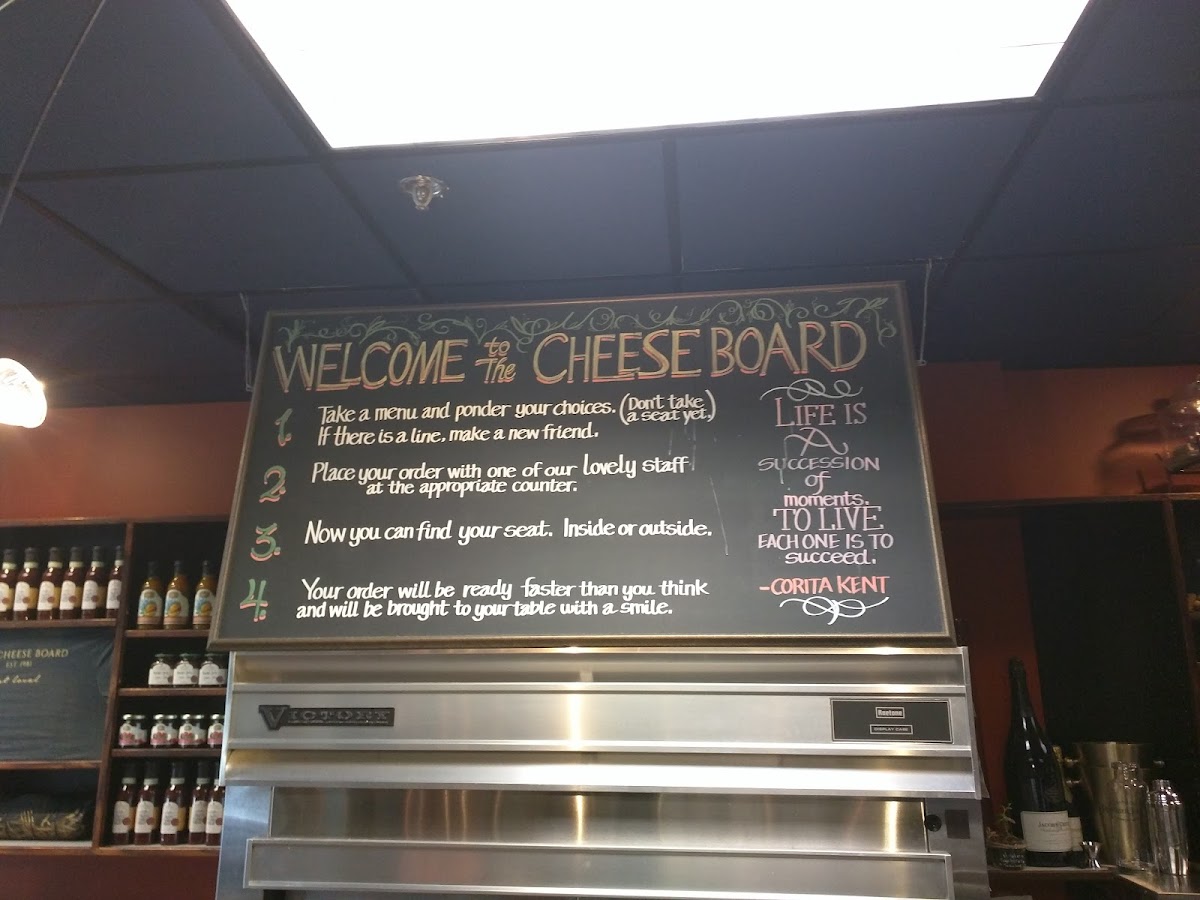 WELCOME to The CHEESE BOARD
1. Take a menu and ponder your choices. (Don't take a seat yet.)
If there is a line, make a new friend.
2. Place your order with one of our lovely staff
at the appropriate counter.
3. Now you can find your seat. Inside or outside.
4. Your order will be ready faster than you think
and will be brought to your table with a smile.
LIFE IS
A
SUCCESSION
of
moments.
TO LIVE
EACH ONE IS TO
succeed.
-CORITA KENT
CHEESE BOARD
EST. 1981
local
VICTORY
DISPLAY CASE